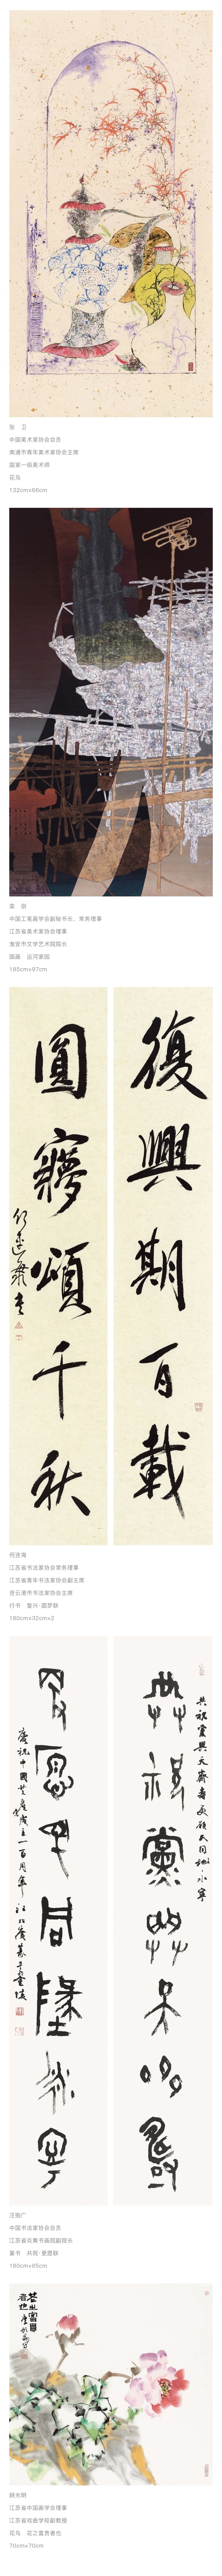 张　卫
中国美术家协会会员
南通市青年美术家协会主席
国家一级美术师
花鸟
132cm×66cm
中国工笔画学会副秘书长、常务理事
江苏省美术家协会理事
淮安市文学艺术院院长
国画　运河家园
185cm×97cm
復興期百載
圓夢頌千秋
何连海
江苏省书法家协会常务理事
江苏省青年书法家协会副主席
连云港市书法家协会主席
行书　复兴·圆梦联
180cm×32cm×2
共祝黨與天齊壽
更願民同地永寧
慶祝中國共產黨成立一百周年
汪骀广
中国书法家协会会员
江苏省炎黄书画院副院长
篆书　共祝·更愿联
180cm×65cm
花之富貴者也
顾光明
江苏省中国画学会理事
江苏省戏曲学校副教授
花鸟　花之富贵者也
70cm×70cm